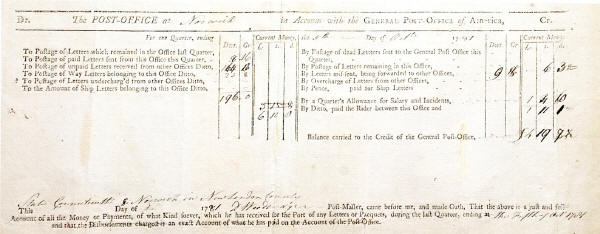 Dr. The POST-OFFICE at Norwich in Account with the GENERAL POST-OFFICE of America, Cr.
For one Quarter, ending the 5th Day of Octr. 1781
Dwt. Gr. Current Money. Dwt. Gr. Current Money.
To Postage of Letters which remained in the Office last Quarter,
To Postage of paid Letters sent from this Office this Quarter,
To Postage of unpaid Letters received from other Offices Ditto,
To Postage of Way Letters belonging to this Office Ditto,
To Postage of Letters undercharg'd from other Offices Ditto,
To the Amount of Ship Letters belonging to this Office Ditto,
196
By Postage of dead Letters sent to the General Post-Office this
Quarter,
By Postage of Letters remaining in this Office,
By Letters mis-sent, being forwarded to other Offices,
By Overcharge of Letters from other Offices,
By Pence, paid for Ship Letters
By a Quarter's Allowance for Salary and Incidents,
By Ditto, paid the Rider between this Office and
Balance carried to the Credit of the General Post-Office,
State Connecticutt Norwich in New London County
This Day of 1781 Post-Master, came before me, and made Oath, That the above is a just and full
Account of all the Money or Payments, of what Kind soever, which he has received for the Port of any Letters or Pacquets, during the last Quarter, ending at the Fifth of Oct 1781
and that the Disbursements charged is an exact Account of what he has paid on the Account of the Post-Office.